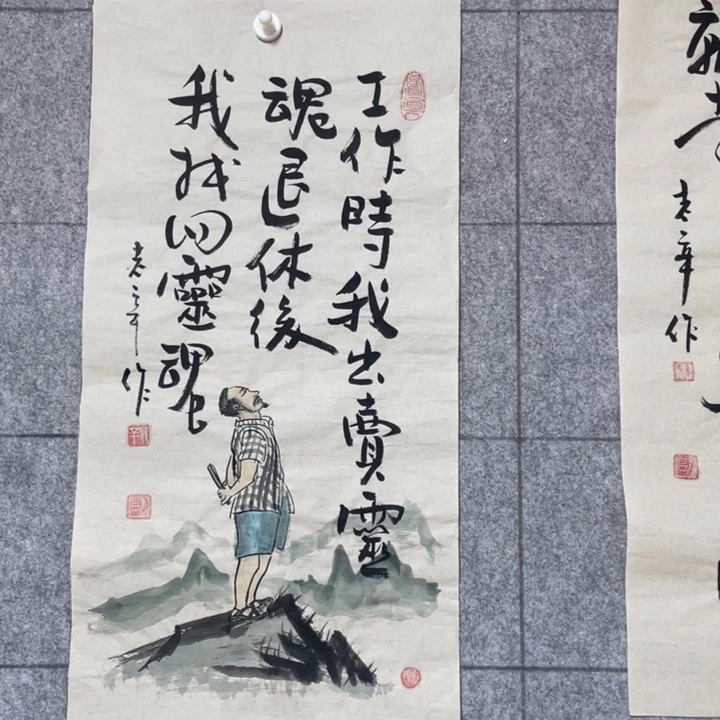 工作時我出賣靈
魂退休後
我找回靈魂
老辛作
老辛作